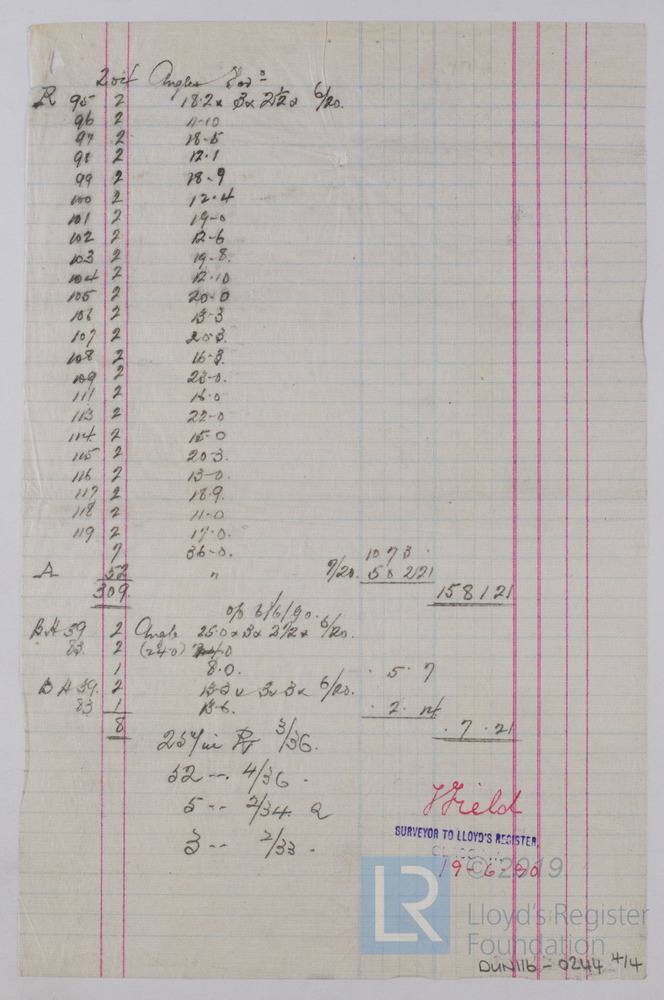 Angles
R 95 2 18.2 x 3 x 2 1/2 x 6/20.
96 2 11-10
97 2 18-5
98 2 12.1
99 2 18-9
100 2 12-4
101 2 19-0
102 2 12-6
103 2 19-8.
104 2 12.10
105 2 20-0
106 2 13-3
107 2 20.3.
108 2
109 2 23-0.
111 2
113 2 22-0
114 2 15-0
115 2 20.3.
116 2 13-0.
117 2 18.9.
118 2 11-0
119 2 17-0.
7 36-0. 10 7 3
A 52 " 7/20. 5 0 2 21
309 15 8 1 21
o/o 6/6/90.
BH 59 2 Angle 25.0 x 3 x 2 1/2 x 6/20.
83. 2 (24.0)
1 8.0. . 5. 7
BH 59. 2 x 3 x 6/20.
83 1 13-6. . 2. 14
8 . 7 . 21
257 in R 3/36.
52 -- 4/36 -
5 -- 2/34
3 -- 2/33 -
Field
SURVEYOR TO LLOYD'S REGISTER,
19-6-90
© 2019
LR
Lloyd's Register
Foundation
DUN116-0244 4/4